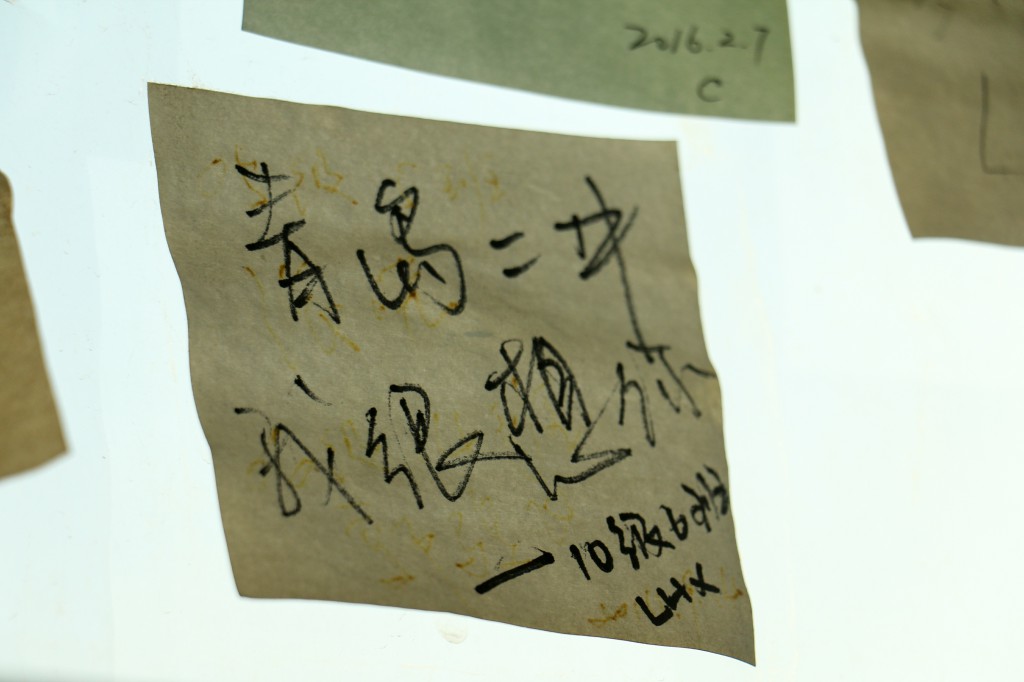 2016.2.7
C
青岛二中
我很想你
一10级6班
LHX